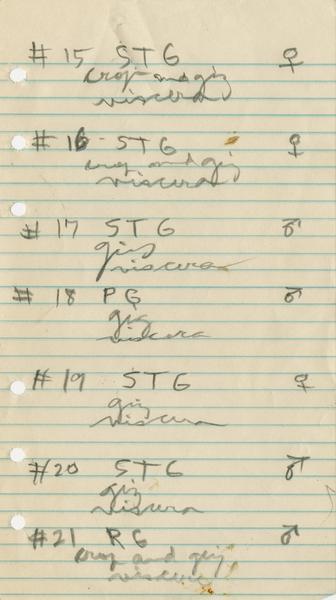 #15 STG ♀
crop and giz
viscera
#16 STG ♀
crop and giz
viscera
#17 STG ♂
giz
viscera
#18 PG ♂
giz
viscera
#19 STG ♀
giz
viscera
#20 STG ♂
giz
viscera
#21 RG ♂
crop and giz
viscera